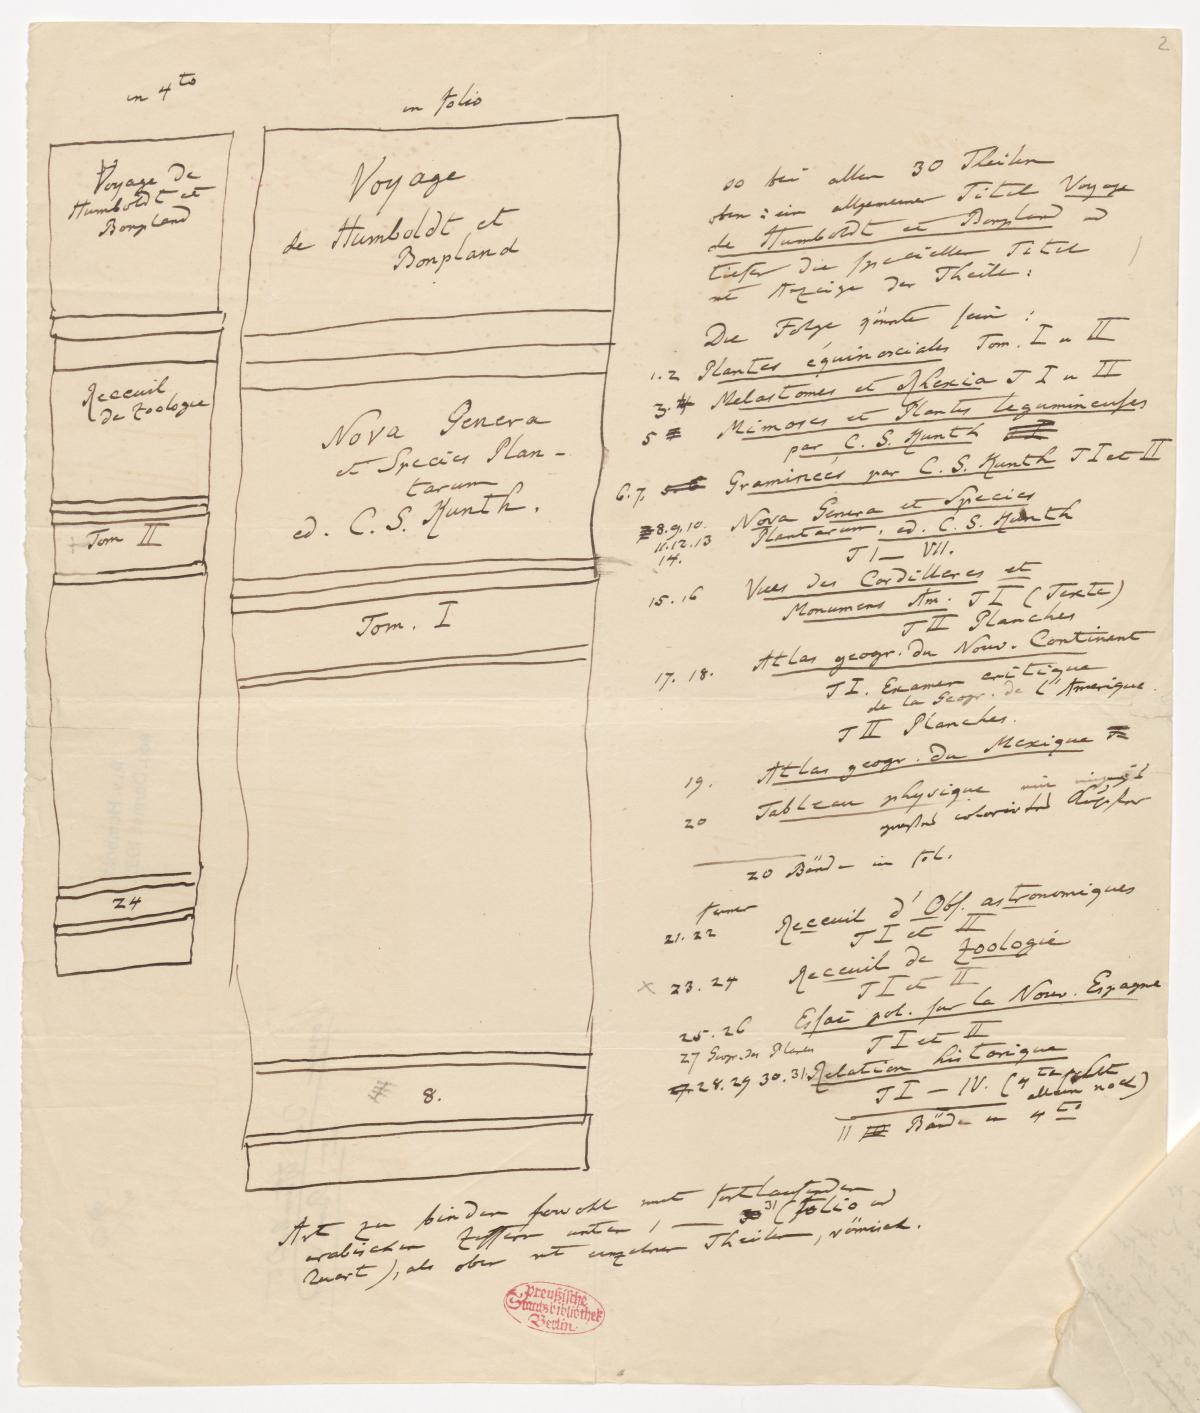 2
in 4to
Voyage de
Humboldt et
Bonpland
Receuil
de Zoologie
Tom II
24
in folio
Voyage
de Humboldt et
Bonpland
Nova Genera
et Species Plan-
tarum
ed. C. S. Kunth.
Tom. I
8.
so bei allen 30 Theilen
oben: ein allgemeiner Titel Voyage
de Humboldt et Bonpland u
tiefer die speciellen Titel
mit Anzeige der Theile:
Die Folge könnte sein:
1.2 Plantes équinoxiales Tom. I u II
3. 4 Melastomes et Rhexia T I u II
5 Mimoses et Plantes legumineuses
par C. S. Kunth
6.7. Graminées par C. S. Kunth T I et II
8.9.10. Nova Genera et Species
11.12.13 Plantarum, ed. C. S. Kunth
14. T I — VII.
15. 16 Vues des Cordilleres et
Monumens Am. T I (Texte)
T II Planches
17. 18. Atlas geogr. du Nouv. Continent
T I. Examen critique
de la Geogr. de l'Amerique.
T II Planches.
19. Atlas geogr. du Mexique
20 Tableau physique
colorirtes Kupfer
20 Bände in fol.
ferner
21. 22 Receuil d'Obs. astronomiques
T I et II
x 23. 24 Receuil de Zoologie
T I et II
25. 26 Essai pol. sur la Nouv. Espagne
T I et II
27 Geogr. des Plantes
28. 29 30. 31. Relation historique
T I — IV. (4ter fehlt
allein noch)
11 Bände in 4to
Art zu binden sowohl mit fortlaufenden
arabischen Ziffern unten 1 — 31 (folio u
Quart), als oben mit einzelnen Theilen, römisch.
Preußische
Staatsbibliothek
Berlin.